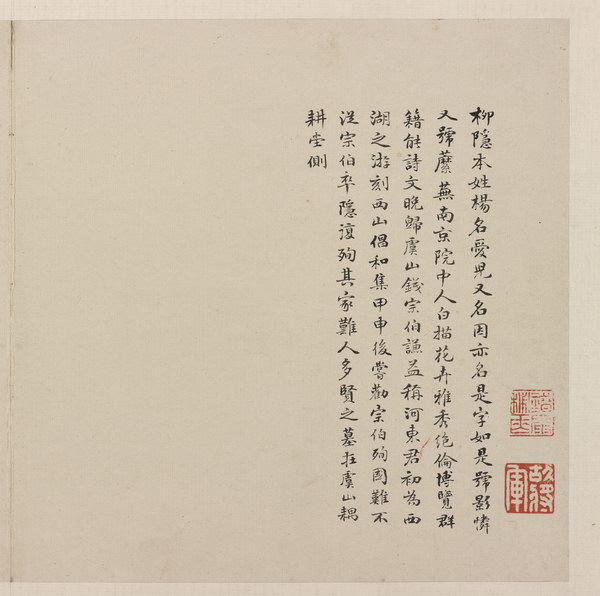 柳隱本姓楊名愛兒又名因亦名是字如是號影憐
又號蘼蕪南京院中人白描花卉雅秀絕倫博覽群
籍能詩文晚歸虞山錢宗伯謙益稱河東君初為西
湖之游刻西山倡和集甲申後嘗勸宗伯殉國難不
從宗伯卒隱復殉其家難人多賢之墓在虞山耦
耕堂側